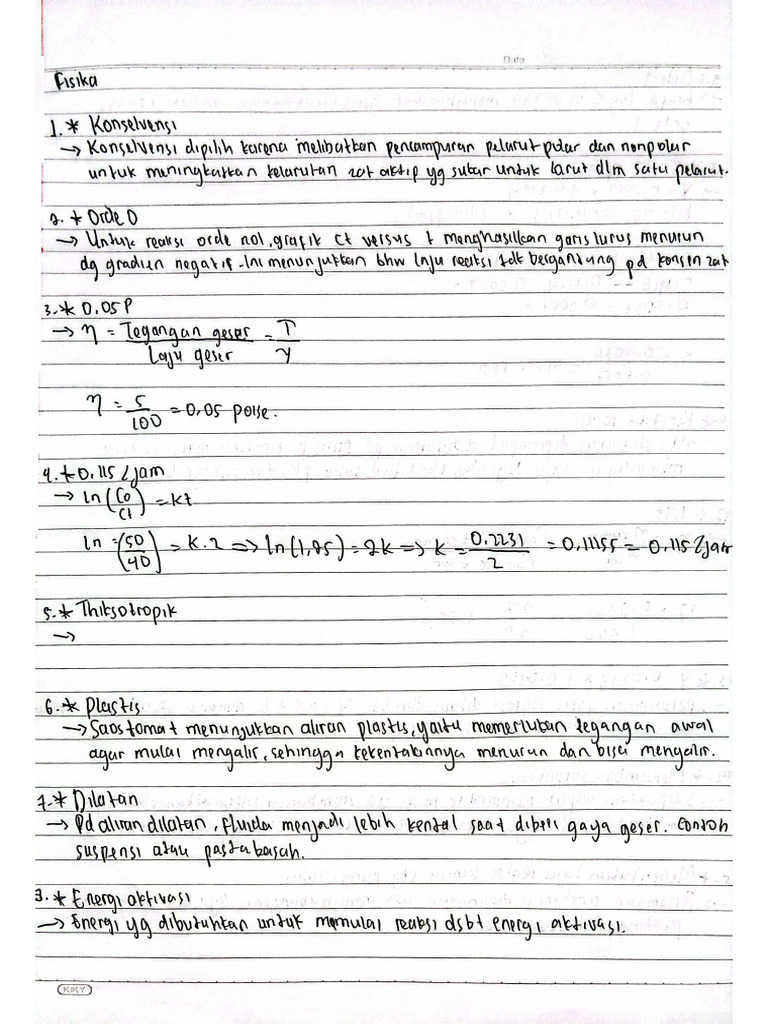 Date
Fisika
1. * Konsolvensi
→ Konsolvensi dipilih karena melibatkan pencampuran pelarut polar dan nonpolar
untuk meningkatkan kelarutan zat aktif yg sukar untuk larut dlm satu pelarut.
2. * Orde 0
→ Untuk reaksi orde nol, grafik Ct versus t menghasilkan garis lurus menurun
dg gradien negatif. Ini menunjukkan bhw laju reaksi tdk bergantung pd konsen zat
3. * 0.05 P
→ η = Tegangan geser / Laju geser = τ / γ
η = 5 / 100 = 0,05 poise.
4. * 0.115 2 jam
→ ln (Co / Ct) = Kt
ln = (50 / 40) = K.2 => ln (1,25) = 2K => K = 0.2231 / 2 = 0,11155 = 0,115 2 jam
5. * Thiksotropik
→
6. * Plastis
→ Saos tomat menunjukkan aliran plastis, yaitu memerlukan tegangan awal
agar mulai mengalir, sehingga kekentalannya menurun dan bisa mengalir.
7. * Dilatan
→ Pd aliran dilatan, fluida menjadi lebih kental saat diberi gaya geser. Contoh
suspensi atau pasta basah.
8. * Energi aktivasi
→ Energi yg dibutuhkan untuk memulai reaksi dsbt energi aktivasi.
KIKY